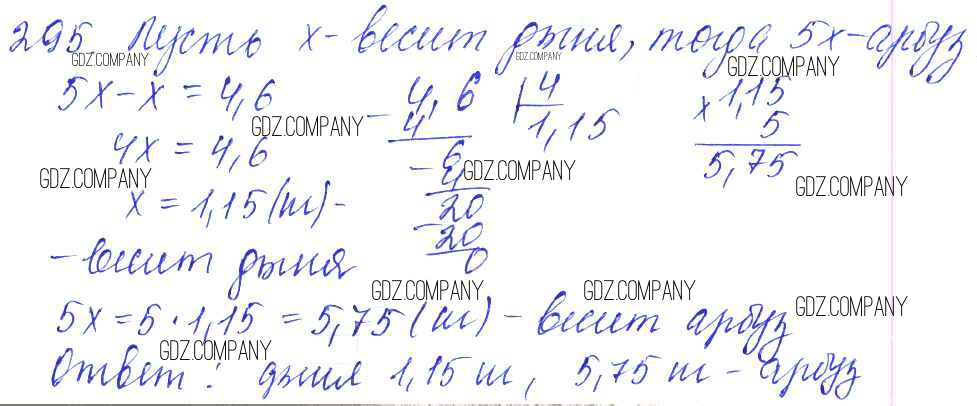 295. Пусть x - весит дыня, тогда 5x - арбуз
5x - x = 4,6
4x = 4,6
x = 1,15 (т) -
- весит дыня
4,6 | 4
- 4 1,15
- 6
4
20
- 20
0
x 1,15
5
5,75
5x = 5 · 1,15 = 5,75 (т) - весит арбуз
Ответ: дыня 1,15 т, 5,75 т - арбуз
GDZ.COMPANY
GDZ.COMPANY
GDZ.COMPANY
GDZ.COMPANY
GDZ.COMPANY
GDZ.COMPANY
GDZ.COMPANY
GDZ.COMPANY
GDZ.COMPANY
GDZ.COMPANY
GDZ.COMPANY